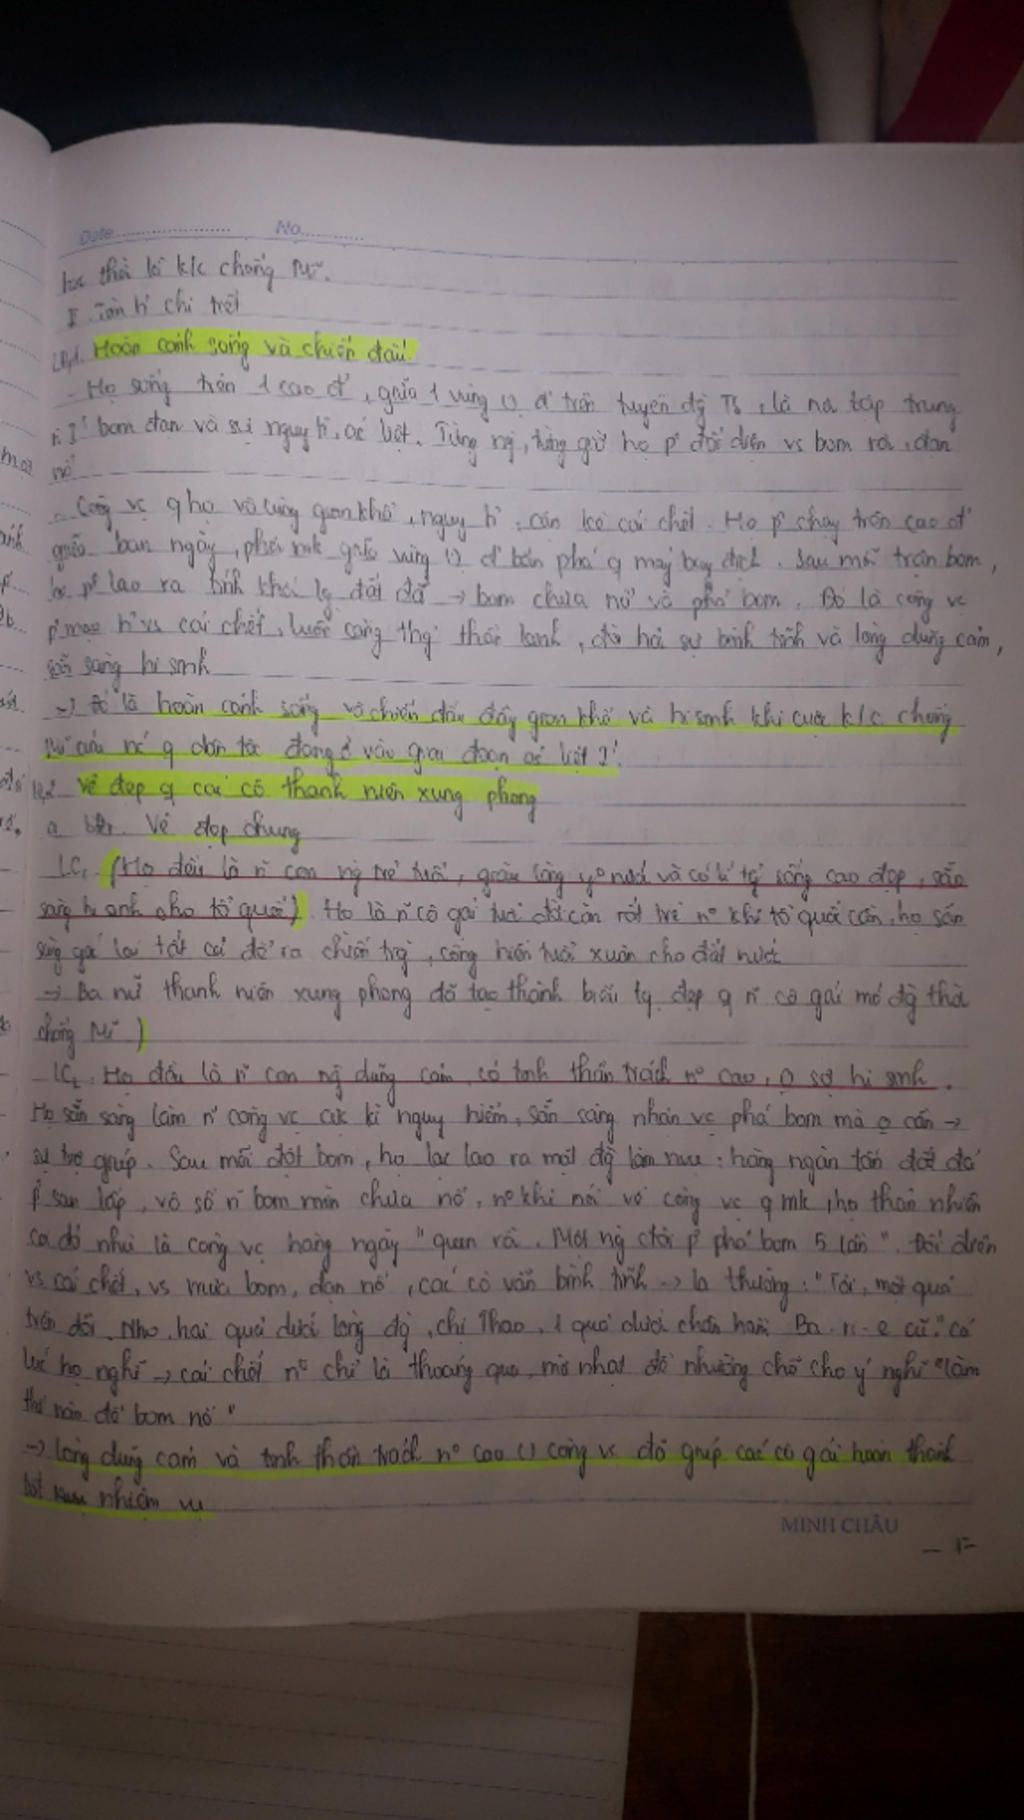 Date.................... No............
thời kì k/c chống Mĩ.
II. tiết
Hoàn cảnh sống và chiến đấu
- Họ sống trên 1 cao đ', giữa 1 vùng () đ' trên tuyến đg TS, là nơi tập trung
bom đạn và sự nguy h', ác liệt. Từng ng, từng giờ họ p' đối diện vs bom rơi, đạn
nổ
- Công vc q họ vô cùng gian khổ, nguy h', cận kề cái chết. Họ p' chạy trên cao đ'
giữa ban ngày, phơi mk giữa vùng () đ' bắn phá q máy bay địch. Sau mỗi trận bom,
họ p' lao ra tính khối lg đất đá → bom chưa nổ và phá bom. Đó là công vc
p' mạo h' vs cái chết, luôn căng thg thần kinh, đòi hỏi sự bình tĩnh và lòng dũng cảm,
sẵn sàng hi sinh
→ Đó là hoàn cảnh sống và chiến đấu đầy gian khổ và hi sinh khi cuộc k/c chống
Mĩ cứu nc q dân tộc đang ở vào giai đoạn ác liệt I'.
Vẻ đẹp q các cô thanh niên xung phong
a. Vẻ đẹp chung
LC1. (Họ đều là n~ con ng trẻ tuổi, giàu lòng yo nước và có lí tg sống cao đẹp, sẵn
sàng hi sinh cho tổ quốc). Họ là n~ cô gái tuổi đời còn rất trẻ no khi tổ quốc cần, họ sẵn
sàng gác lại tất cả để ra chiến trg, cống hiến tuổi xuân cho đất nước
→ Ba nữ thanh niên xung phong đã tạo thành biểu tg đẹp q n~ cô gái mở đg thời
chống Mĩ )
LC2. Họ đều là n~ con ng dũng cảm, có tinh thần trách no cao, o sợ hi sinh.
Họ sẵn sàng làm n~ công vc cực kì nguy hiểm, sẵn sàng nhận vc phá bom mà o cần →
sự trợ giúp. Sau mỗi đợt bom, họ lại lao ra mặt đg làm nvu: hàng ngàn tấn đất đá
p' san lấp, vô số n~ bom mìn chưa nổ, no khi nói về công vc q mk, họ thản nhiên
coi đó như là công vc hàng ngày "quen rồi. Một ng chúng tôi p' phá bom 5 lần". Đối diện
vs cái chết, vs mưa bom, đạn nổ, các cô vẫn bình tĩnh → lạ thường: "Tôi, một quả
trên đồi. Nho, hai quả dưới lòng đg, chị Thao, 1 quả dưới chân hầm Ba-ri-e cũ." có
lúc họ nghĩ → cái chết no chỉ là thoáng qua, mờ nhạt để nhường chỗ cho ý nghĩ "làm
thế nào để bom nổ"
→ lòng dũng cảm và tinh thần trách no cao () công vc đã giúp các cô gái hoàn thành
tốt nhiệm vụ
MINH CHÂU